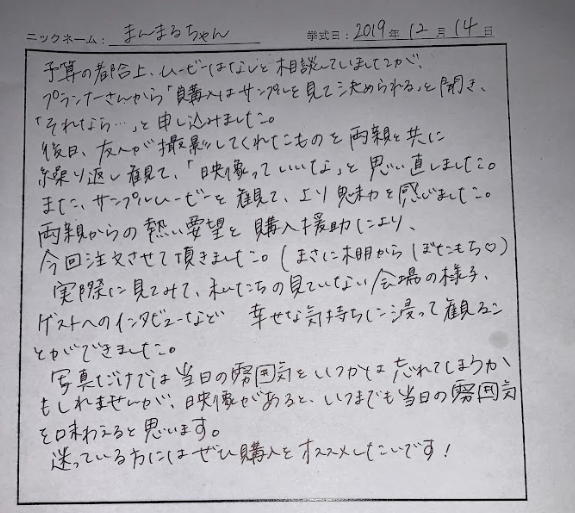 ニックネーム： まんまるちゃん 挙式日：2019年 12月 14日
予算の都合上、ムービーはなしと相談していましたが、
プランナーさんから「購入はサンプルを見て決められる」と聞き、
「それなら…」と申し込みました。
後日、友人が撮影してくれたものを両親と共に
繰り返し観て、「映像っていいな」と思い直しました。
また、サンプルムービーを観て、より魅力を感じました。
両親からの熱い要望と購入援助により、
今回注文させて頂きました。（まさに棚からぼたもち♡）
実際に見てみて、私たちの見ていない会場の様子、
ゲストへのインタビューなど 幸せな気持ちに浸って観るこ
とができました。
写真だけでは当日の雰囲気をいつかは忘れてしまうか
もしれませんが、映像があると、いつまでも当日の雰囲気
を味わえると思います。
迷っている方にはぜひ購入をオススメしたいです！